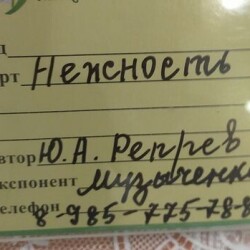 рт Нежность
втор Ю. А. Репрев
кспонент Музыченк
елефон 8-985-775-78-8